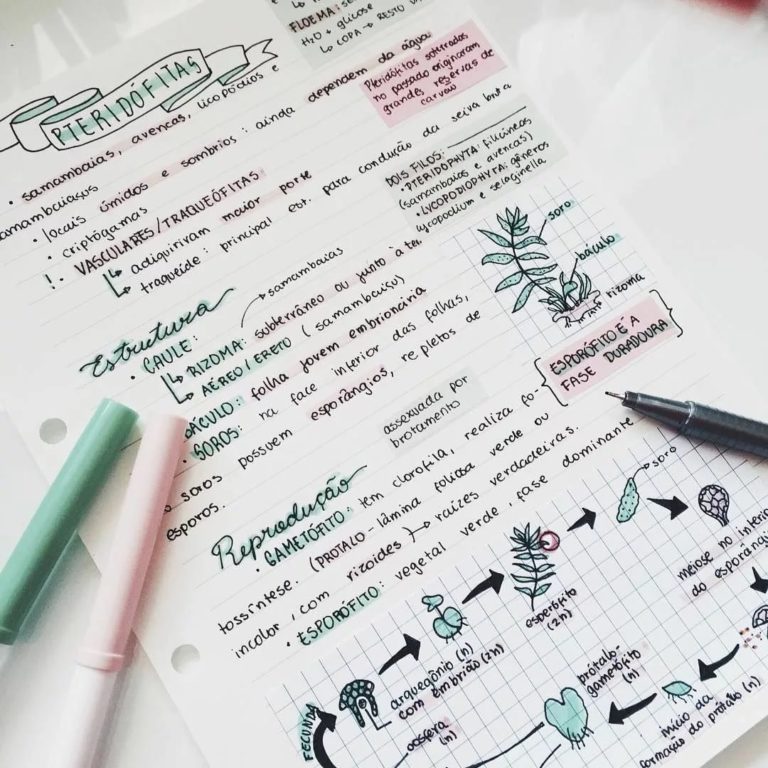 FLOEMA: SE
H₂O + glicose
↳ COPA → RESTO
PTERIDÓFITAS
• samambaias, avencas, licopódios e
samambaiaçus
• locais úmidos e sombrios: ainda dependem da água
• criptógamas
!. VASCULARES/TRAQUEÓFITAS
↳ adquiriram maior porte
↳ traqueíde: principal est. para condução da seiva bruta
Pteridófitas soterradas
no passado originaram
grandes reservas de
carvão
DOIS FILOS:
• PTERIDOPHYTA: filicíneas
(samambaias e avencas)
• LYCOPODIOPHYTA: gêneros
lycopodium e selaginella
soro
báculo
rizoma
Estrutura
• CAULE:
samambaias
↳ RIZOMA: subterrâneo ou junto à ter
↳ AÉREO/ERETO (samambaiaçu)
BÁCULO: folha jovem embrionária
• SOROS: na face inferior das folhas,
o soros possuem esporângios, repletos de
esporos.
ESPORÓFITO É A
FASE DURADOURA
assexuada por
brotamento
Reprodução
• GAMETÓFITO: tem clorofila, realiza fo-
tossíntese. (PROTALO - lâmina foliosa verde ou
incolor, com rizoides) → raízes verdadeiras.
• ESPORÓFITO: vegetal verde, fase dominante
soro
meiose no interio
do esporângi
esporófito
(2n)
arquegônio (n)
com embrião (2n)
FECUND
oosfera
(n)
prótalo-
gametófito
(n)
início da
formação do prótalo (n)